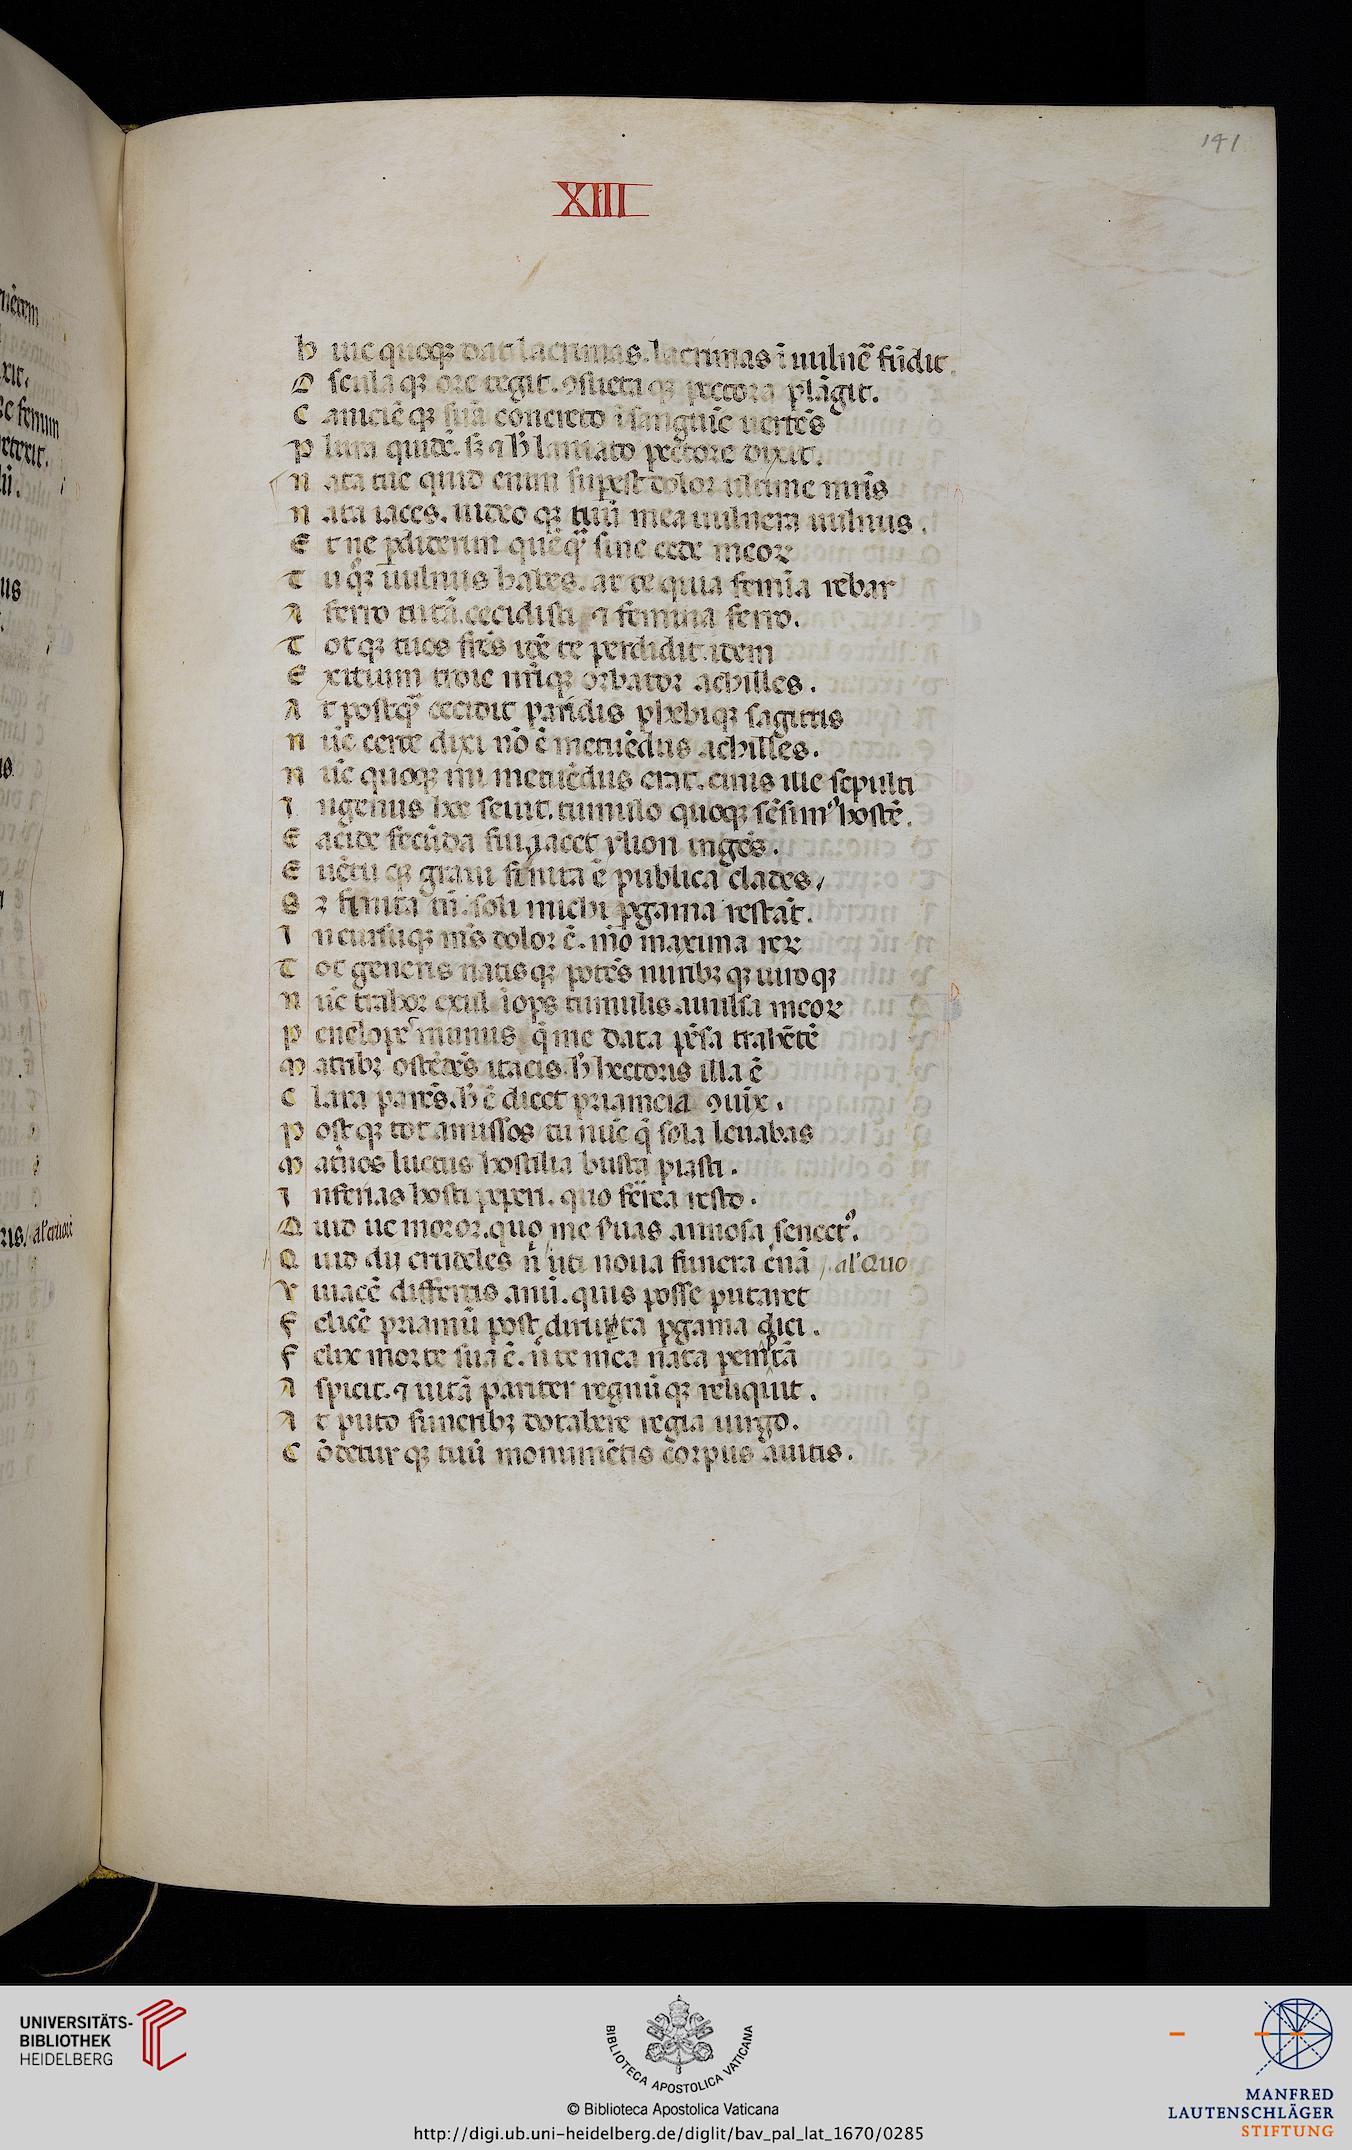 141
XIII
h uic quoqꝫ dat lacrimas. lacrimas ī uulnē fūdit.
O sculaqꝫ ore tegit. ꝯsuetaqꝫ pectora plāgit.
C aniciēqꝫ suā concreto ī sanguīe uertēs
P lura quidē. sꝫ ⁊ h̄ laniato pectore dixit.
N ata tue quid enim supest dolor ultime mr̄is
N ata iaces. uideoqꝫ tuū mea uulnera uulnus.
E t ne ꝑdiderim quēq̄ sine cede meoꝝ
T u qꝫ uulnus habes. at te quia femīa rebar
A ferro tutā. cecidisti ⁊ femina ferro.
T otqꝫ tuos fr̄es idē te perdidit. idem
E xitium troie nr̄iqꝫ orbator achilles.
A t postq̄ cecidit paridis phebiqꝫ sagittis
N ūc certe dixi nō ē metuēdus achilles.
N ūc quoqꝫ mi metuēdus erat. cinis ille sepulti
I ngenus hoc seuit. tumulo quoqꝫ sēsim᾿ hostē.
E acide fecūda fui. iacet ylion ingēs.
E uētuqꝫ graui finita ē publica clades,
S ꝫ finita tn̄. soli michi ꝑgama restāt.
I n cursuqꝫ m̄s dolor ē. mō maxima reꝝ
T ot generis natisqꝫ potēs nuribꝫqꝫ uiroqꝫ
N ūc trahor exul īops tumulis auulsa meoꝝ
P enelope munus q̄ me data pēsa trahētē
M atribꝫ ostēdēs itacis. h̄ hectoris illa ē
C lara parēs. h̄ ē dicet priameia ꝯiūx.
P ostqꝫ tot amissos tu nūc q̄ sola leuabas
M at̄nos luctus hostilia busta piasti.
I nferias hosti peperi. quo ferrea resto.
Q uid ue moror. quo me s̄uas annosa senect᾿.
Q uid dij crudeles n̄ uti noua funera cernā, al' Quo
V iuacē differtis anū. quis posse putaret
F elicē priamū post diruta ꝑgama dici.
F elix morte sua ē. n̄ te mea nata pemptā
A spicit. ⁊ uitā pariter regnūqꝫ reliquit.
A t puto funeribꝫ dotabere regia uirgo.
C ōdeturqꝫ tuū monumētis corpus auitis.
ris, al' cruore
UNIVERSITÄTS-
BIBLIOTHEK
HEIDELBERG
BIBLIOTECA APOSTOLICA VATICANA
© Biblioteca Apostolica Vaticana
http://digi.ub.uni-heidelberg.de/diglit/bav_pal_lat_1670/0285
MANFRED
LAUTENSCHLÄGER
STIFTUNG